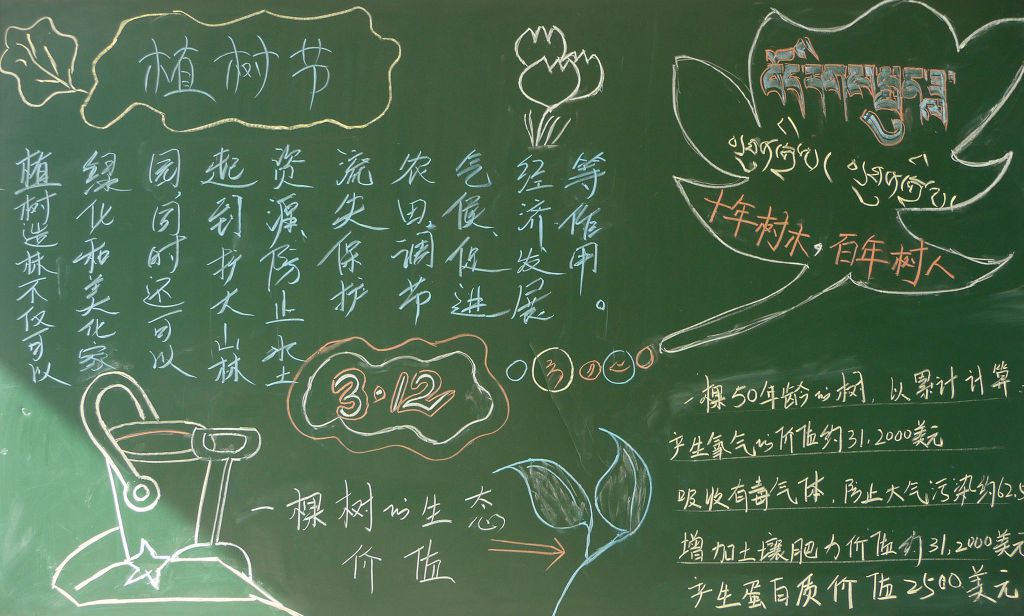 植树节
植树造林不仅可以
绿化和美化家
园,同时还可以
起到扩大山林
资源、防止水土
流失、保护
农田、调节
气候、促进
经济发展
等作用。
十年树木，百年树人
3·12
一棵树的生态
价值
一棵50年龄的树，以累计计算，
产生氧气的价值约31.2000美元
吸收有毒气体，防止大气污染约62.5
增加土壤肥力价值约31,2000美元
产生蛋白质价值2500美元